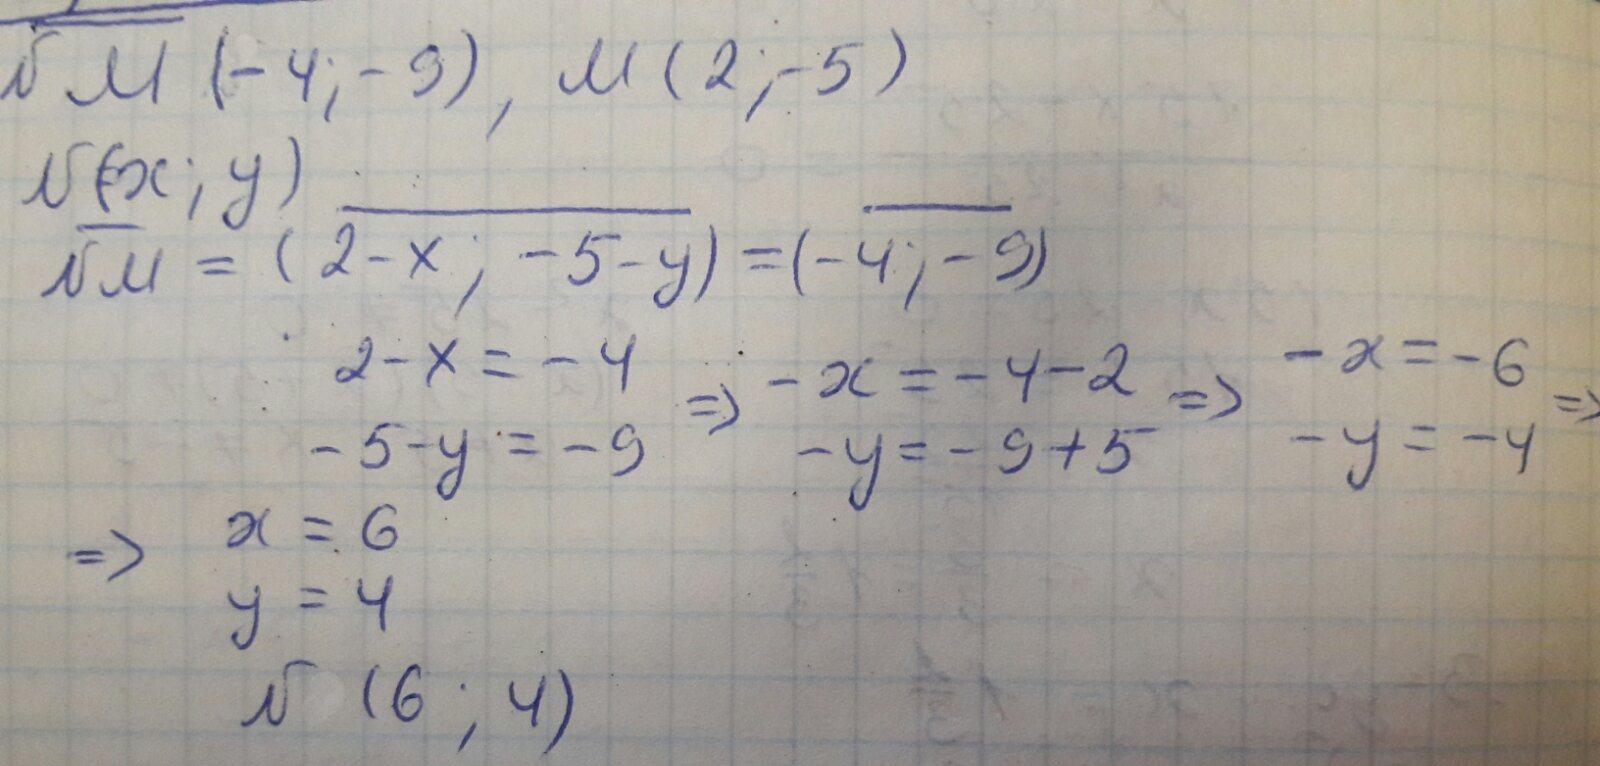 NM (-4; -9), M (2; -5)
N(x; y)
NM = (2-x; -5-y) = (-4; -9)
2-x = -4 => -x = -4-2 => -x = -6 =>
-5-y = -9 -y = -9+5 -y = -4
=> x = 6
y = 4
N (6; 4)